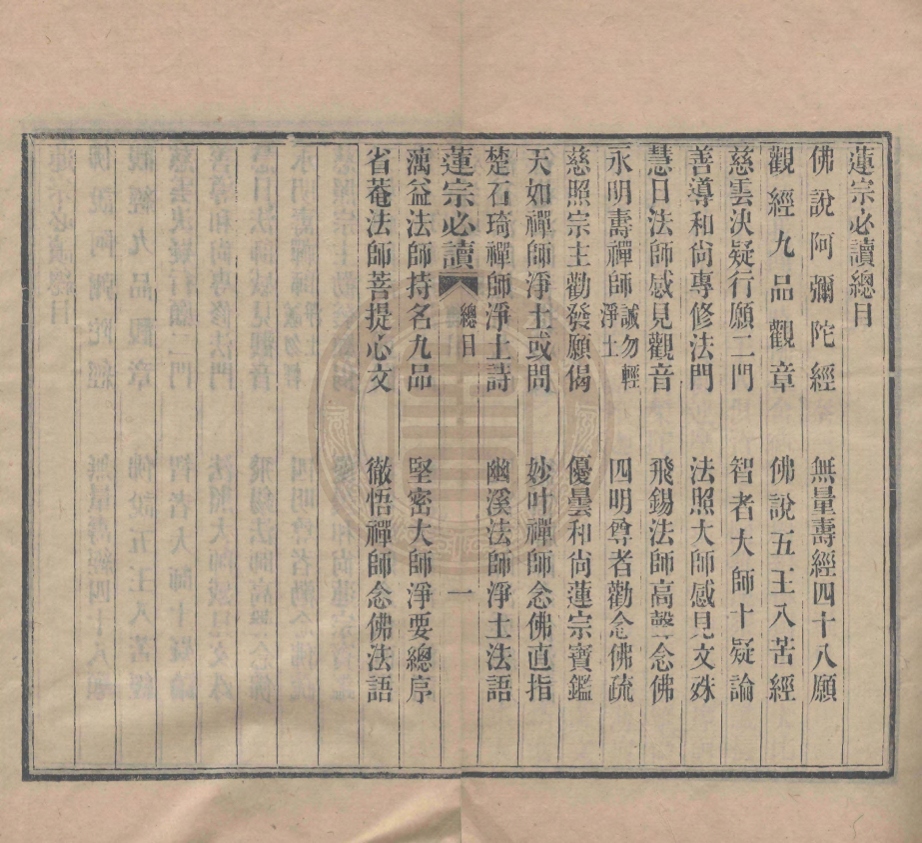 蓮宗必讀總目
佛說阿彌陀經　無量壽經四十八願
觀經九品觀章　佛說五王八苦經
慈雲決疑行願二門　智者大師十疑論
善導和尚專修法門　法照大師感見文殊
慧日法師感見觀音　飛錫法師高聲念佛
永明壽禪師誡勿輕淨土　四明尊者勸念佛疏
慈照宗主勸發願偈　優曇和尚蓮宗寶鑑
天如禪師淨土或問　妙叶禪師念佛直指
楚石琦禪師淨土詩　幽溪法師淨土法語
蓮宗必讀　總目　一
蕅益法師持名九品　堅密大師淨要總序
省菴法師菩提心文　徹悟禪師念佛法語